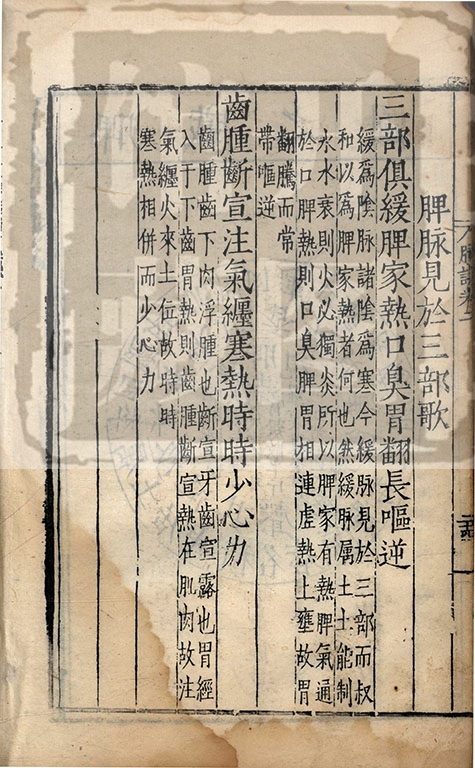 脾脉見於三部歌
三部俱緩脾家熱口臭胃翻長嘔逆
緩爲陰脉諸陰爲寒今緩脉見於三部而叔
和以爲脾家熱者何也然緩脉属土土能制
水水衰則火必獨炎所以脾家有熱脾氣通
於口脾熱則口臭脾胃相連虛熱上壅故胃
翻騰而常
帶嘔逆
齒腫齗宣注氣纏寒熱時時少心力
齒腫齒下肉浮腫也齗宣牙齒宣露也胃經
入于下齒胃熱則齒腫齗宣熱在肌肉故注
氣纏火來土位故時時
寒熱相併而少心力